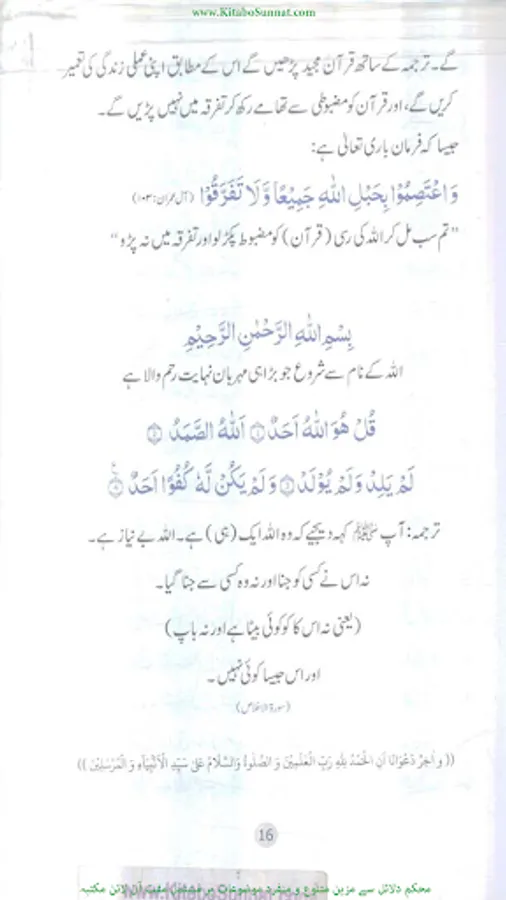 www.KitaboSunnat.com
گے۔ ترجمہ کے ساتھ قرآن مجید پڑھیں گے اس کے مطابق اپنی عملی زندگی کی تعمیر
کریں گے، اور قرآن کو مضبوطی سے تھامے رکھ کر تفرقہ میں نہیں پڑیں گے۔
جیسا کہ فرمان باری تعالیٰ ہے:
وَاعْتَصِمُوْا بِحَبْلِ اللّٰهِ جَمِيْعًا وَّلَا تَفَرَّقُوْا (آل عمران: ۱۰۳)
”تم سب مل کر اللہ کی رسی (قرآن) کو مضبوط پکڑ لو اور تفرقہ میں نہ پڑو“
بِسْمِ اللّٰهِ الرَّحْمٰنِ الرَّحِيْمِ
اللہ کے نام سے شروع جو بڑا ہی مہربان نہایت رحم والا ہے
قُلْ هُوَ اللّٰهُ اَحَدٌ ۝۱ اَللّٰهُ الصَّمَدُ ۝۲
لَمْ يَلِدْ وَلَمْ يُوْلَدْ ۝۳ وَلَمْ يَكُنْ لَّهٗ كُفُوًا اَحَدٌ ۝۴
ترجمہ: آپ ﷺ کہہ دیجیے کہ وہ اللہ ایک (ہی) ہے۔ اللہ بے نیاز ہے۔
نہ اس نے کسی کو جنا اور نہ وہ کسی سے جنا گیا۔
(یعنی نہ اس کا کو کوئی بیٹا ہے اور نہ باپ)
اور اس جیسا کوئی نہیں۔
(سورۃ الاخلاص)
((وَ اٰخِرُ دَعْوَانَا اَنِ الْحَمْدُ لِلّٰهِ رَبِّ الْعٰلَمِيْنَ وَ الصَّلٰوةُ وَالسَّلَامُ عَلٰى سَيِّدِ الْاَنْبِيَآءِ وَ الْمُرْسَلِيْنَ))
16
www.KitaboSunnat.com
محکم دلائل سے مزین متنوع و منفرد موضوعات پر مشتمل مفت آن لائن مکتبہ